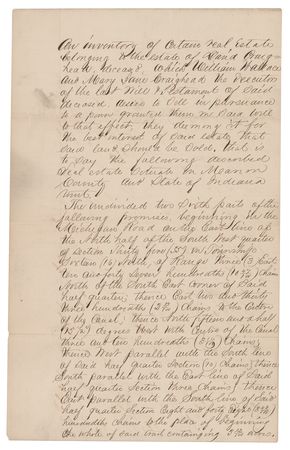 An inventory of Certain real Estate
belonging to the estate of David Craig-
head deceased, which William Wallace
and Mary Jane Craighead the Executors
of the last Will & testament of Said
deceased, desire to Sell in pursuance
to a power granted them in Said will
to that effect, they deeming it for
the best interest of Said estate that
said land Should be Sold, that is
to Say the following described
real estate Situate in Marion
County and State of Indiana
to wit:
The undivided two Sixth parts of the
following premises, beginning in the
Michigan Road on the East line of
the North half of the South West quarter
of Section thirty five (35) in Township
Sixteen (16) North, of Range three (3) East
ten and forty Seven hundredths Chains
North of the South East Corner of Said
half quarter; thence East two and thirty
three hundredths Chains to the Center
of the Canal; thence North fifteen and a half
15 1/2 degrees West with Centre of the Canal
three and ten hundredths Chains;
thence West parallel with the South line
of said half quarter Section (10) Chains; thence
South parallel with the East line of Said
half quarter Section three Chains; thence
East parallel with the South line of Said
half quarter Section Eight and forty
hundredths Chains to the place of beginning
the whole of Said tract containing acres.